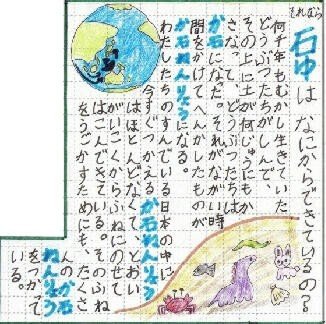 それなら
石ゆは なにからできているの?
何千年もむかし生きていた
どうぶつたちがしんで、
その上に土が何じゅうにもか
さなって、どうぶつたちは
か石になった。それがながい時
間をかけてへんかしたものが
か石ねんりょうになる。
わたしたちのすんでいる日本の中に
今すぐつかえるか石ねんりょう
はほとんどなくて、とおい
がいこくからふねにのせて
はこんできている。そのふね
をうごかすためにも、たくさ
んのか石
ねんりょう
をつかって
いる。